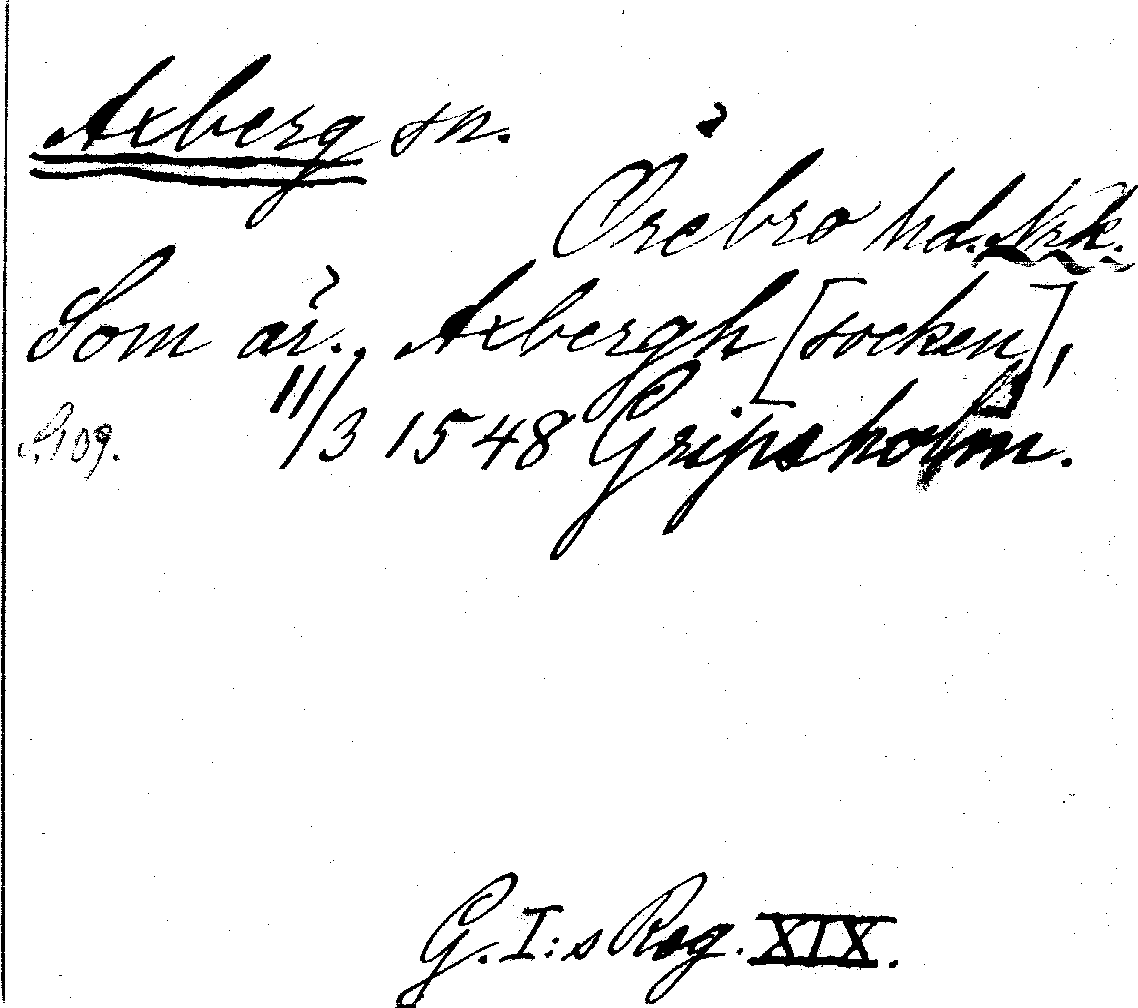 Axberg sn.
Örebro hd. Nrk.
Som är., Axbergh [socken],
S. 109. 11/3 1548 Gripsholm.
G. I:s Reg. XIX.